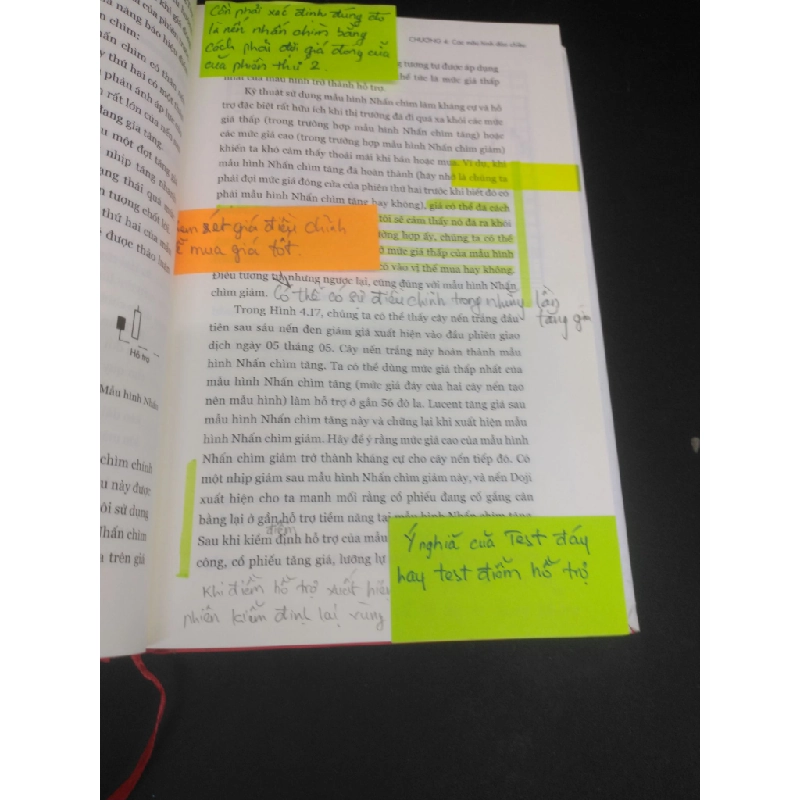 Cần phải xét định đúng đó
là nến nhấn chìm bằng
cách phải đợi giá đóng cửa
của phiên thứ 2.
CHƯƠNG 4: Các mẫu hình đảo chiều
tương tự được áp dụng
tác là mức giá thấp
nhất của mẫu hình trở thành hỗ trợ.
Kỹ thuật sử dụng mẫu hình Nhấn chìm làm kháng cự và hỗ
trợ đặc biệt rất hữu ích khi thị trường đã đi quá xa khỏi các mức
giá thấp (trong trường hợp mẫu hình Nhấn chìm tăng) hoặc
các mức giá cao (trong trường hợp mẫu hình Nhấn chìm giảm)
khiến ta khó cảm thấy thoải mái khi bán hoặc mua. Ví dụ, khi
mẫu hình Nhấn chìm tăng đã hoàn thành (hãy nhớ là chúng ta
phải đợi mức giá đóng cửa của phiên thứ hai trước khi biết đó có
phải mẫu hình Nhấn chìm tăng hay không), giá có thể đã cách
tôi sẽ cảm thấy nó đã ra khỏi
xét giá điều chỉnh
hợp ấy, chúng ta có thể
mua giá tốt.
mức giá thấp của mẫu hình
có vào vị thế mua hay không.
Điều tương tự nhưng ngược lại, cũng đúng với mẫu hình Nhấn
chìm giảm.
Có thể có sự điều chỉnh trong những lần
tăng giá
Trong Hình 4.17, chúng ta có thể thấy cây nến trắng đầu
tiên sau sáu nến đen giảm giá xuất hiện vào đầu phiên giao
dịch ngày 05 tháng 05. Cây nến trắng này hoàn thành mẫu
hình Nhấn chìm tăng. Ta có thể dùng mức giá thấp nhất của
mẫu hình Nhấn chìm tăng (mức giá đáy của hai cây nến tạo
nên mẫu hình) làm hỗ trợ ở gần 56 đô la. Lucent tăng giá sau
mẫu hình Nhấn chìm tăng này và chững lại khi xuất hiện mẫu
hình Nhấn chìm giảm. Hãy để ý rằng mức giá cao của mẫu hình
Nhấn chìm giảm trở thành kháng cự cho cây nến tiếp đó. Có
một nhịp giảm sau mẫu hình Nhấn chìm giảm này, và nến Doji
xuất hiện cho ta manh mối rằng cổ phiếu đang cố gắng cân
bằng lại ở gần hỗ trợ tiềm năng tại mẫu hình Nhấn chìm tăng
điểm
Sau khi kiểm định hỗ trợ của mẫu
công, cổ phiếu tăng giá, lưỡng lự
Ý nghĩa của Test đáy
hay test điểm hỗ trợ
Khi điểm hỗ trợ xuất hiện
phiên kiểm định lại vùng
chìm:
chìm có thân
thứ hai có một
phản ánh áp lực
rất lớn của nến
đang gia tăng.
một đợt tăng
nhịp tăng nhanh
trạng thái quá
tượng chốt lời,
thứ hai của mẫu
được thảo luận
Hỗ trợ
Mẫu hình Nhấn
chìm chính
này được
sử dụng
Nhấn chìm
trên giá